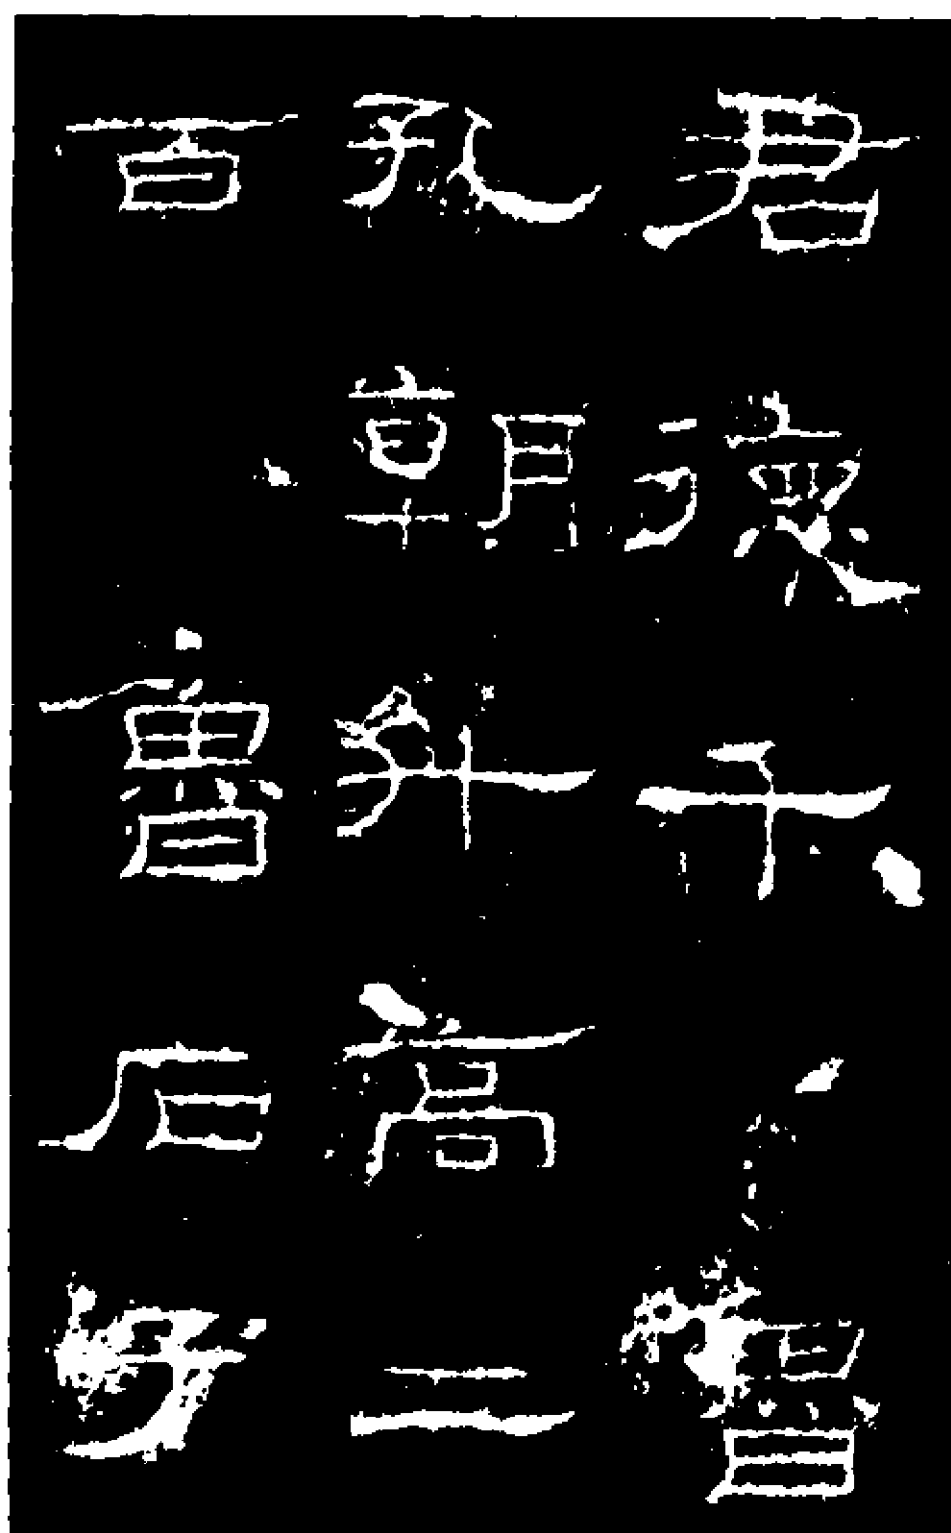 君德千魯
孔朝升高二
百魯石子